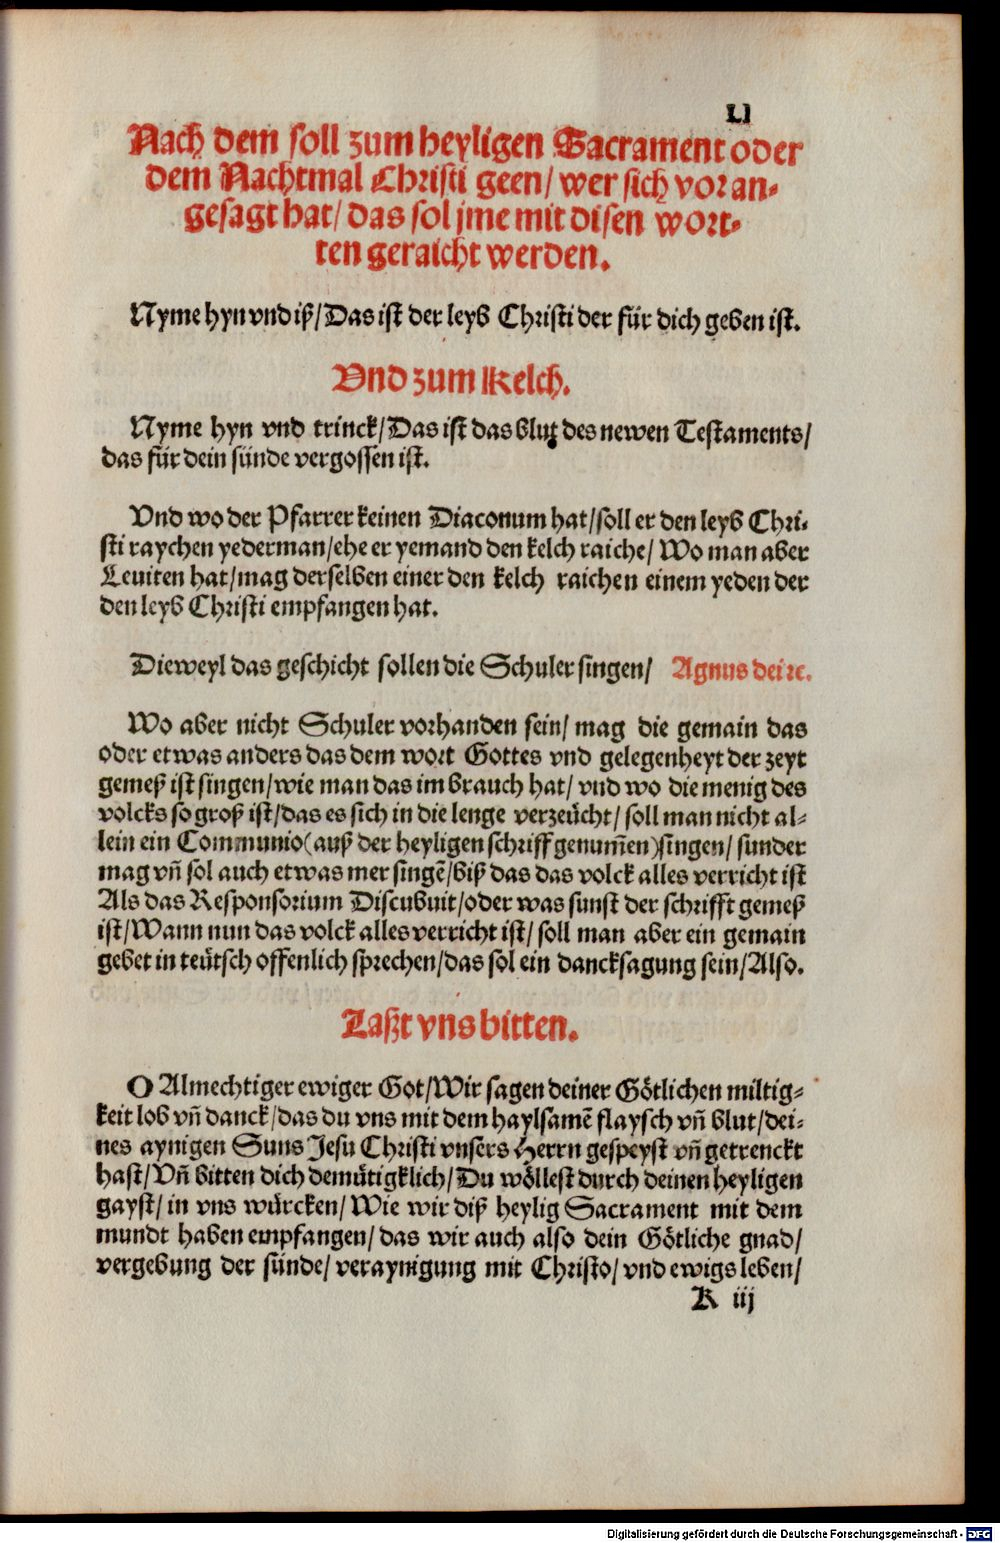 LI
Nach dem soll zum heyligen Sacrament oder
dem Nachtmal Christi geen/ wer sich vor an-
gesagt hat/ das sol jme mit disen wort-
ten geraicht werden.
Nyme hyn vnd iß/ Das ist der leyb Christi der für dich geben ist.
Vnd zum Kelch.
Nyme hyn vnd trinck/ Das ist das blut des newen Testaments/
das für dein sünde vergossen ist.
Vnd wo der Pfarrer keinen Diaconum hat/ soll er den leyb Chri-
sti raychen yederman/ ehe er yemand den kelch raiche/ Wo man aber
Leuiten hat/ mag derselben einer den kelch raichen einem yeden der
den leyb Christi empfangen hat.
Dieweyl das geschicht sollen die Schuler singen/ Agnus dei ꝛc.
Wo aber nicht Schuler vorhanden sein/ mag die gemain das
oder etwas anders das dem wort Gottes vnd gelegenheyt der zeyt
gemeß ist singen/ wie man das im brauch hat/ vnd wo die menig des
volcks so groß ist/ das es sich in die lenge verzeücht/ soll man nicht al-
lein ein Communio (auß der heyligen schrifft genum̃en) singen/ sunder
mag vñ sol auch etwas mer singẽ/ biß das das volck alles verricht ist
Als das Responsorium Discubuit/ oder was sunst der schrifft gemeß
ist/ Wann nun das volck alles verricht ist/ soll man aber ein gemain
gebet in teütsch offenlich sprechen/ das sol ein dancksagung sein/ Also.
Laßt vns bitten.
O Almechtiger ewiger Got/ Wir sagen deiner Götlichen miltig-
keit lob vñ danck/ das du vns mit dem haylsamẽ flaysch vñ blut/ dei-
nes aynigen Suns Jesu Christi vnsers Herrn gespeyst vñ getrenckt
hast/ Vñ bitten dich demütigklich/ Du wöllest durch deinen heyligen
gayst/ in vns würcken/ Wie wir diß heylig Sacrament mit dem
mundt haben empfangen/ das wir auch also dein Götliche gnad/
vergebung der sünde/ veraynigung mit Christo/ vnd ewigs leben/
K iij
Digitalisierung gefördert durch die Deutsche Forschungsgemeinschaft - DFG